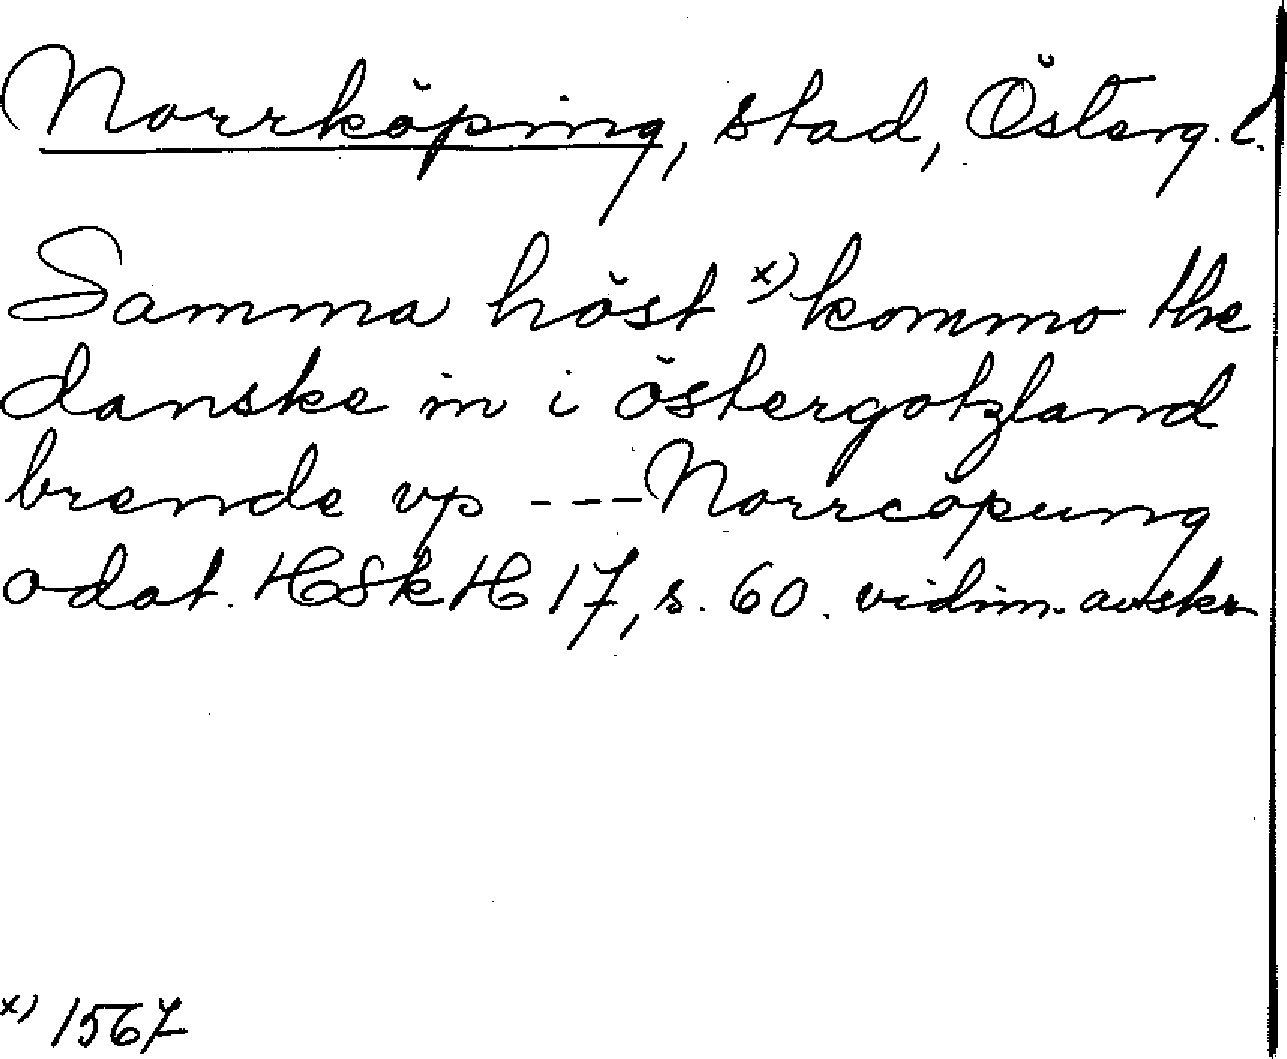 Norrköping, stad, Österg. l.
Samma höst x) kommo the
danske in i östergotzland
brende vp --- Norrcöpung
odat. HSkH 17, s. 60. vidim. avskr
x) 1567